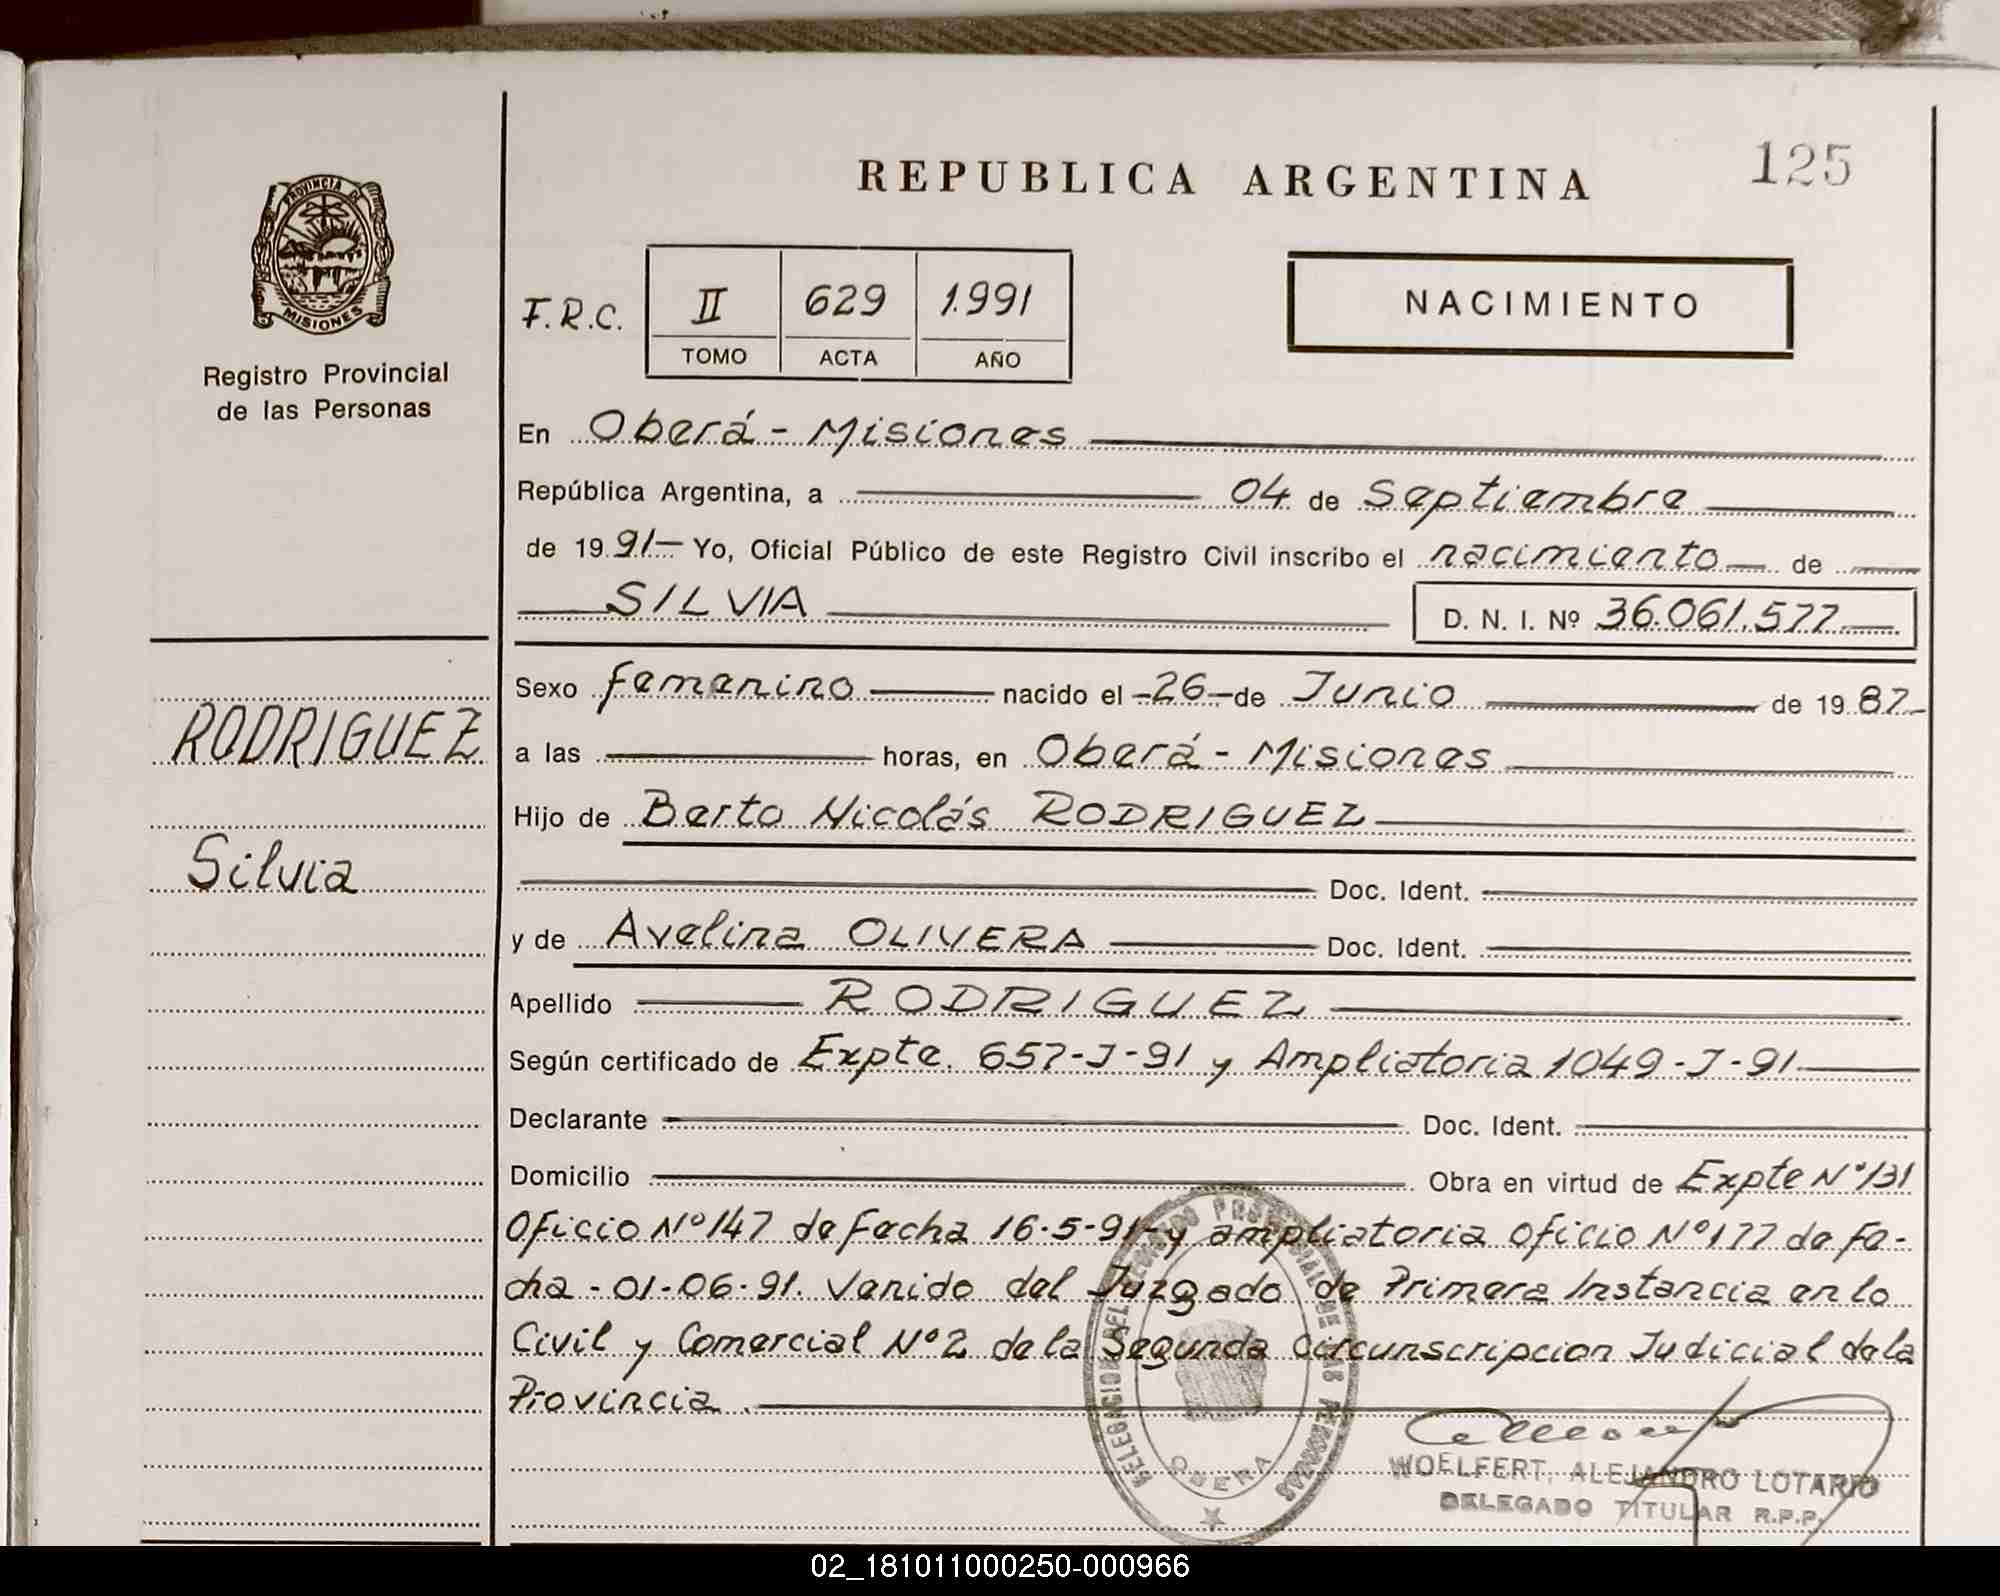 REPUBLICA ARGENTINA
125
PROVINCIA DE
MISIONES
Registro Provincial
de las Personas
F.R.C.
II 629 1.991
TOMO ACTA AÑO
NACIMIENTO
En Oberá - Misiones
República Argentina, a 04 de Septiembre
de 1991- Yo, Oficial Público de este Registro Civil inscribo el nacimiento de
SILVIA D. N. I. Nº 36.061.577
Sexo femenino nacido el -26- de Junio de 1987-
RODRIGUEZ
a las horas, en Oberá - Misiones
Hijo de Berto Nicolás RODRIGUEZ
Silvia
Doc. Ident.
y de Avelina OLIVERA Doc. Ident.
Apellido RODRIGUEZ
Según certificado de Expte. 657-J-91 y Ampliatoria 1049-J-91.
Declarante Doc. Ident.
Domicilio Obra en virtud de Expte Nº 131
Oficio Nº 147 de fecha 16-5-91- y ampliatoria oficio Nº 177 de fe-
cha - 01-06-91. Venido del Juzgado de Primera Instancia en lo
Civil y Comercial Nº 2 de la Segunda Circunscripcion Judicial de la
Provincia.
DELEGACION DEL REGISTRO PROVINCIAL DE LAS PERSONAS
OBERA
WOELFERT, ALEJANDRO LOTARIO
DELEGADO TITULAR R.P.P.
02_181011000250-000966